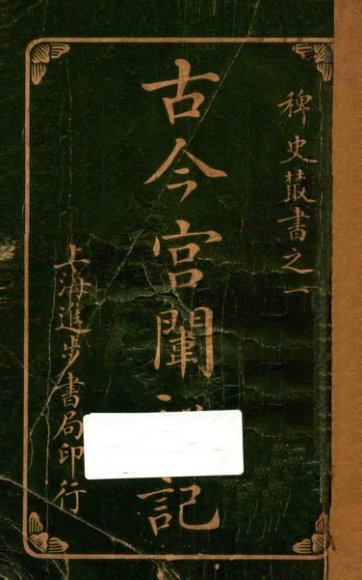 稗史叢書之一
古今宮闈 記
上海進步書局印行